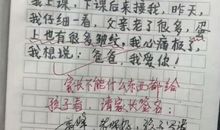 我上课，下课后来接我，昨天，
我仔细一看，父亲老了很多，
上也有很多皱纹，我心痛极了，
我想说：爸爸，我爱你！
家长不能什么东西都给
孩子看，请家长签名：